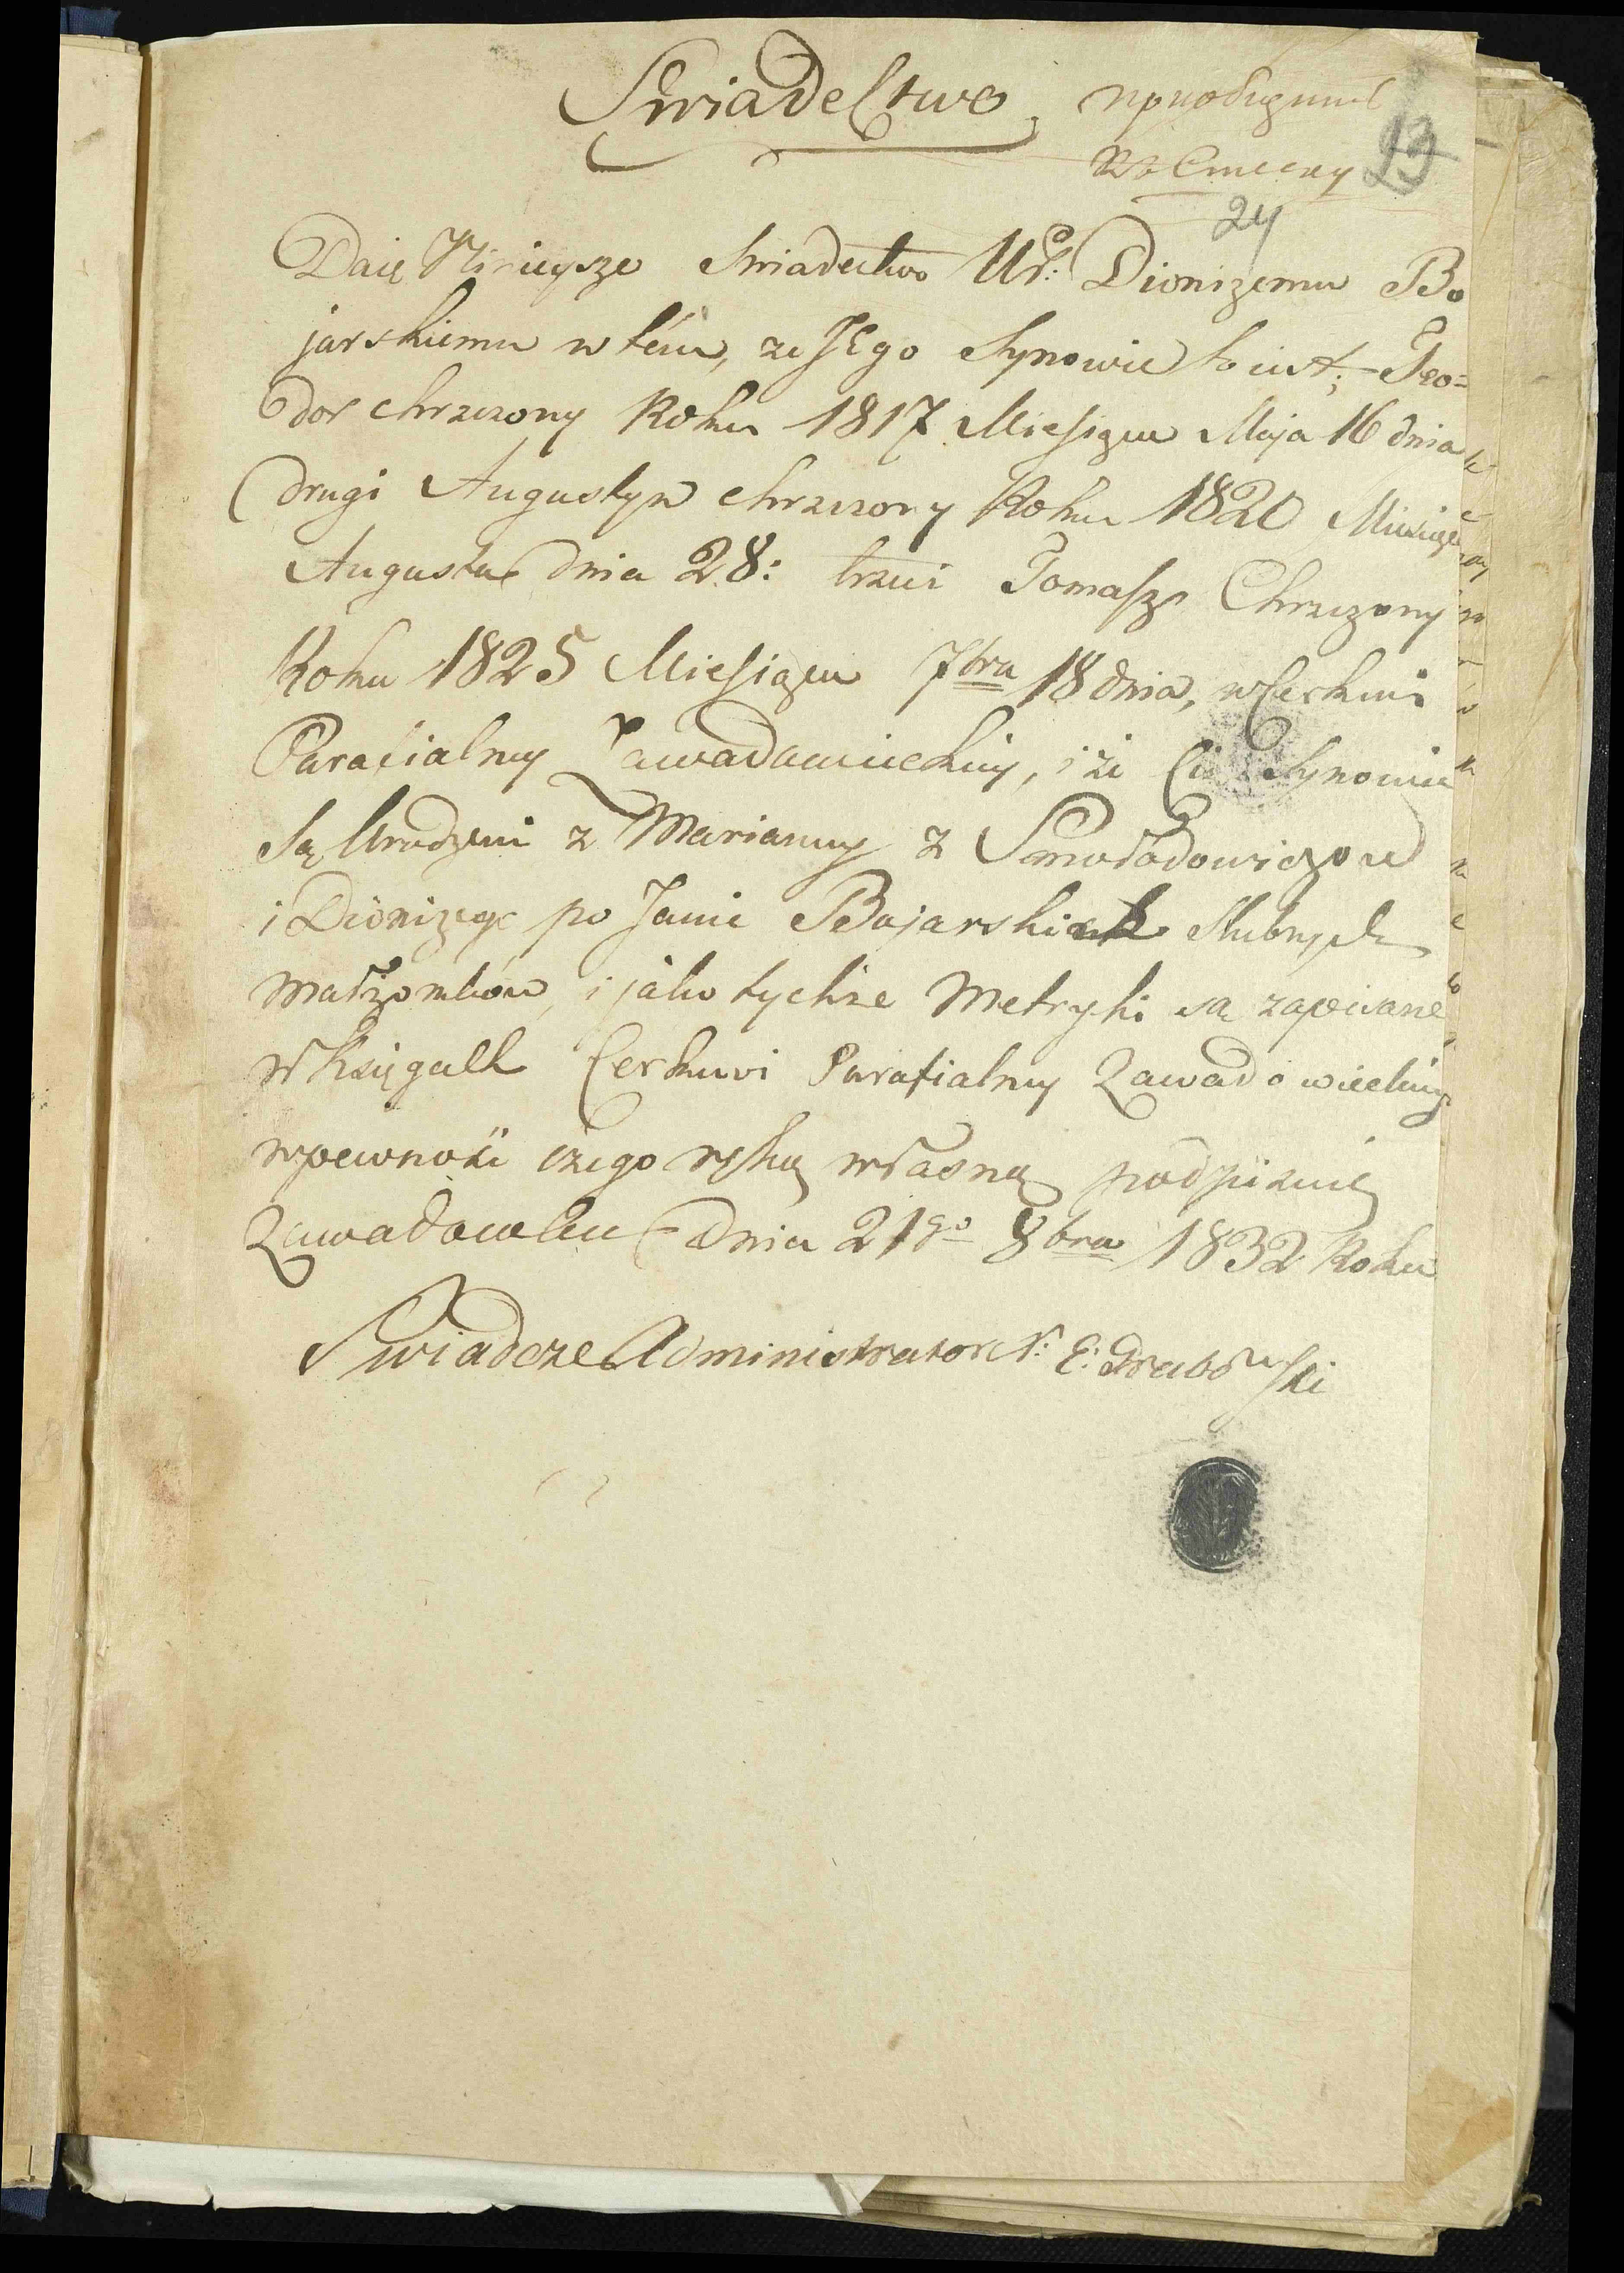 Swiadectwo
приобщить
къ Списку
23
24
Daię Ninieysze Swiadectwo Ur: Dionizemu Bo
jarskiemu w tém, że JEgo Synowie to iest: Teo=
dor chrzczony Roku 1817 Miesiąca Maja 16 dnia
drugi Augustyn chrzczony Roku 1820 Miesiąca
Augusta dnia 28: trzeci Tomasz Chrzczony
Roku 1825 Miesiąca 7bra 18 dnia, w Cerkwi
Parafialney Zawadowieckiey, i że Ci Synowie
Są Urodzeni z Marianny z Smoładowiczow
i Dionizego po Janie Bojarskich Slubnych
małżonków, i jako tychże Metryki są zapisane
w Księgach Cerkwi Parafialney Zawadowieckiey
w pewność czego ręką własną podpisuię
Zawadowka dnia 21go 8bra 1832 Roku
Swiadcze Administrator X: E: Grabowski